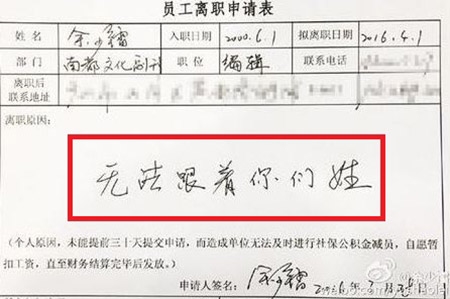 员工离职申请表
姓名 余少镭 入职日期 2000.6.1 拟离职日期 2016.4.1
部门 南都文化副刊 职位 编辑 联系电话
离职后
联系地址
离职原因:
无法跟着你们姓
(个人原因,未能提前三十天提交申请,而造成单位无法及时进行社保公积金减员,自愿暂
扣工资,直至财务结算完毕后发放。)
申请人签名: 余少镭 2016年3月28日